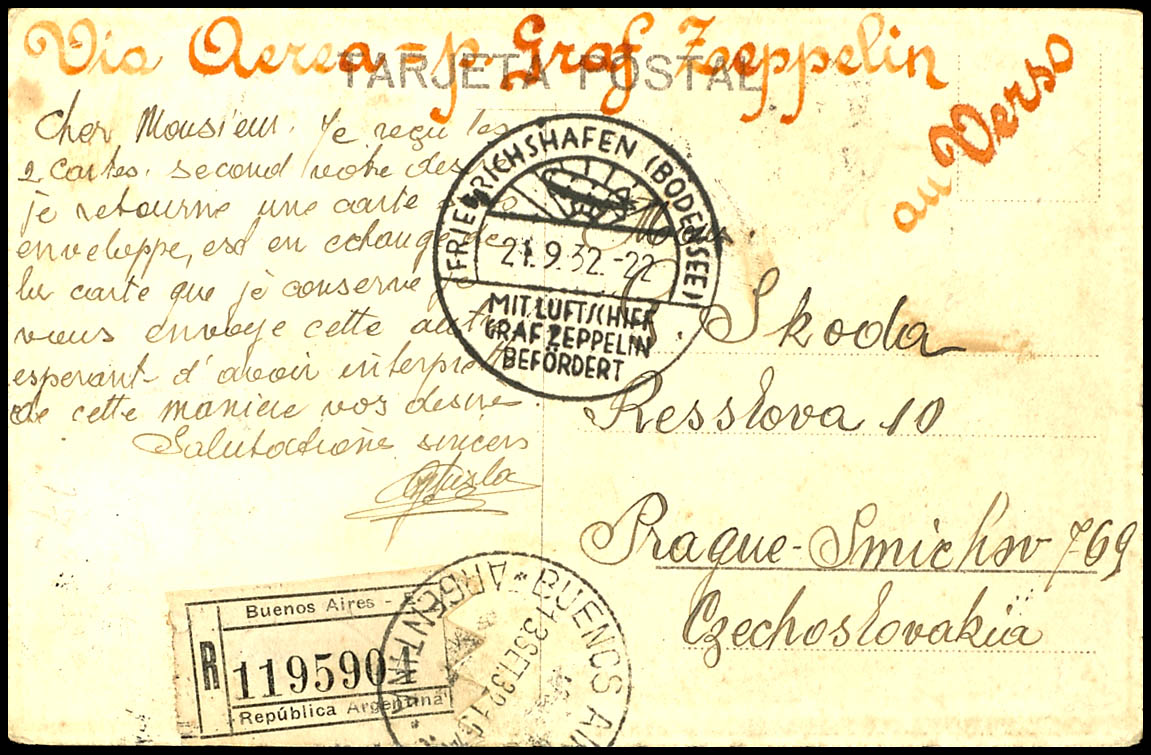 Via Aerea = p. Graf Zeppelin
TARJETA POSTAL
au Verso
Cher Monsieur. Je reçu les
2 cartes. second votre des
je retourne une carte
enveloppe, est en echange de
la carte que je conserve je
vous envoye cette autre
esperant d'avoir interpreté
de cette maniere vos desire.
Salutations sincers
(FRIEDRICHSHAFEN (BODENSEE)
21.9.32.-22
MIT LUFTSCHIFF
GRAF ZEPPELIN
BEFÖRDERT
Skoda
Resslova 10
Prague-Smichov 769
Czechoslovakia
Buenos Aires -
R
119590
República Argentina
BUENOS AI
ARGENTINA
13 SET. 32